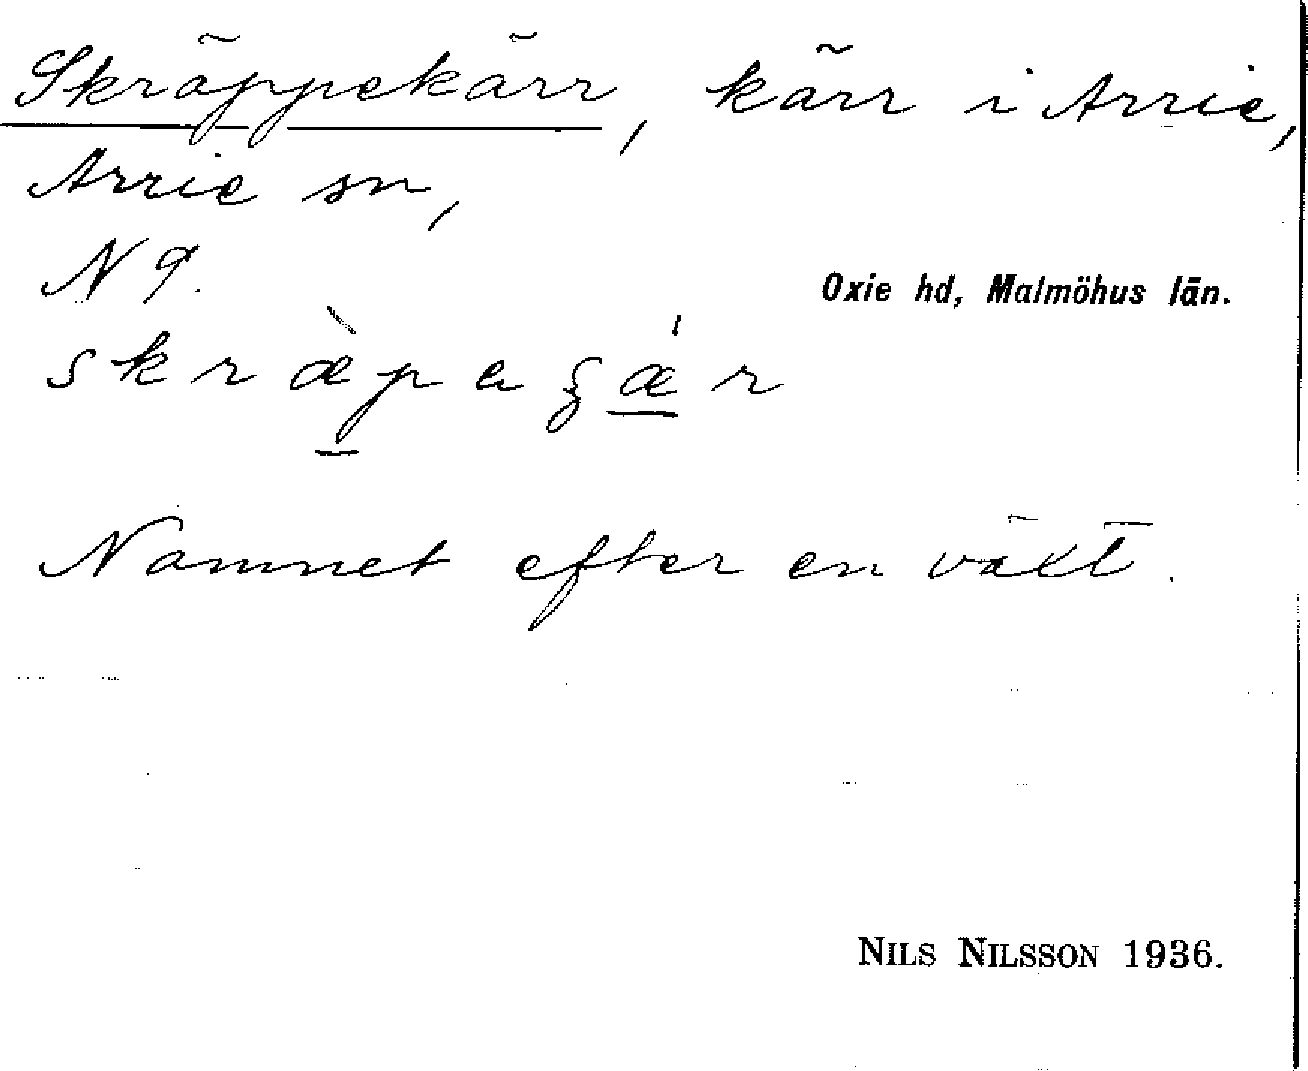 Skräppekärr, kärr i Arrie,
Arrie sn,
N 9.
Oxie hd, Malmöhus län.
skræ̀pagǽr
Namnet efter en växt.
NILS NILSSON 1936.